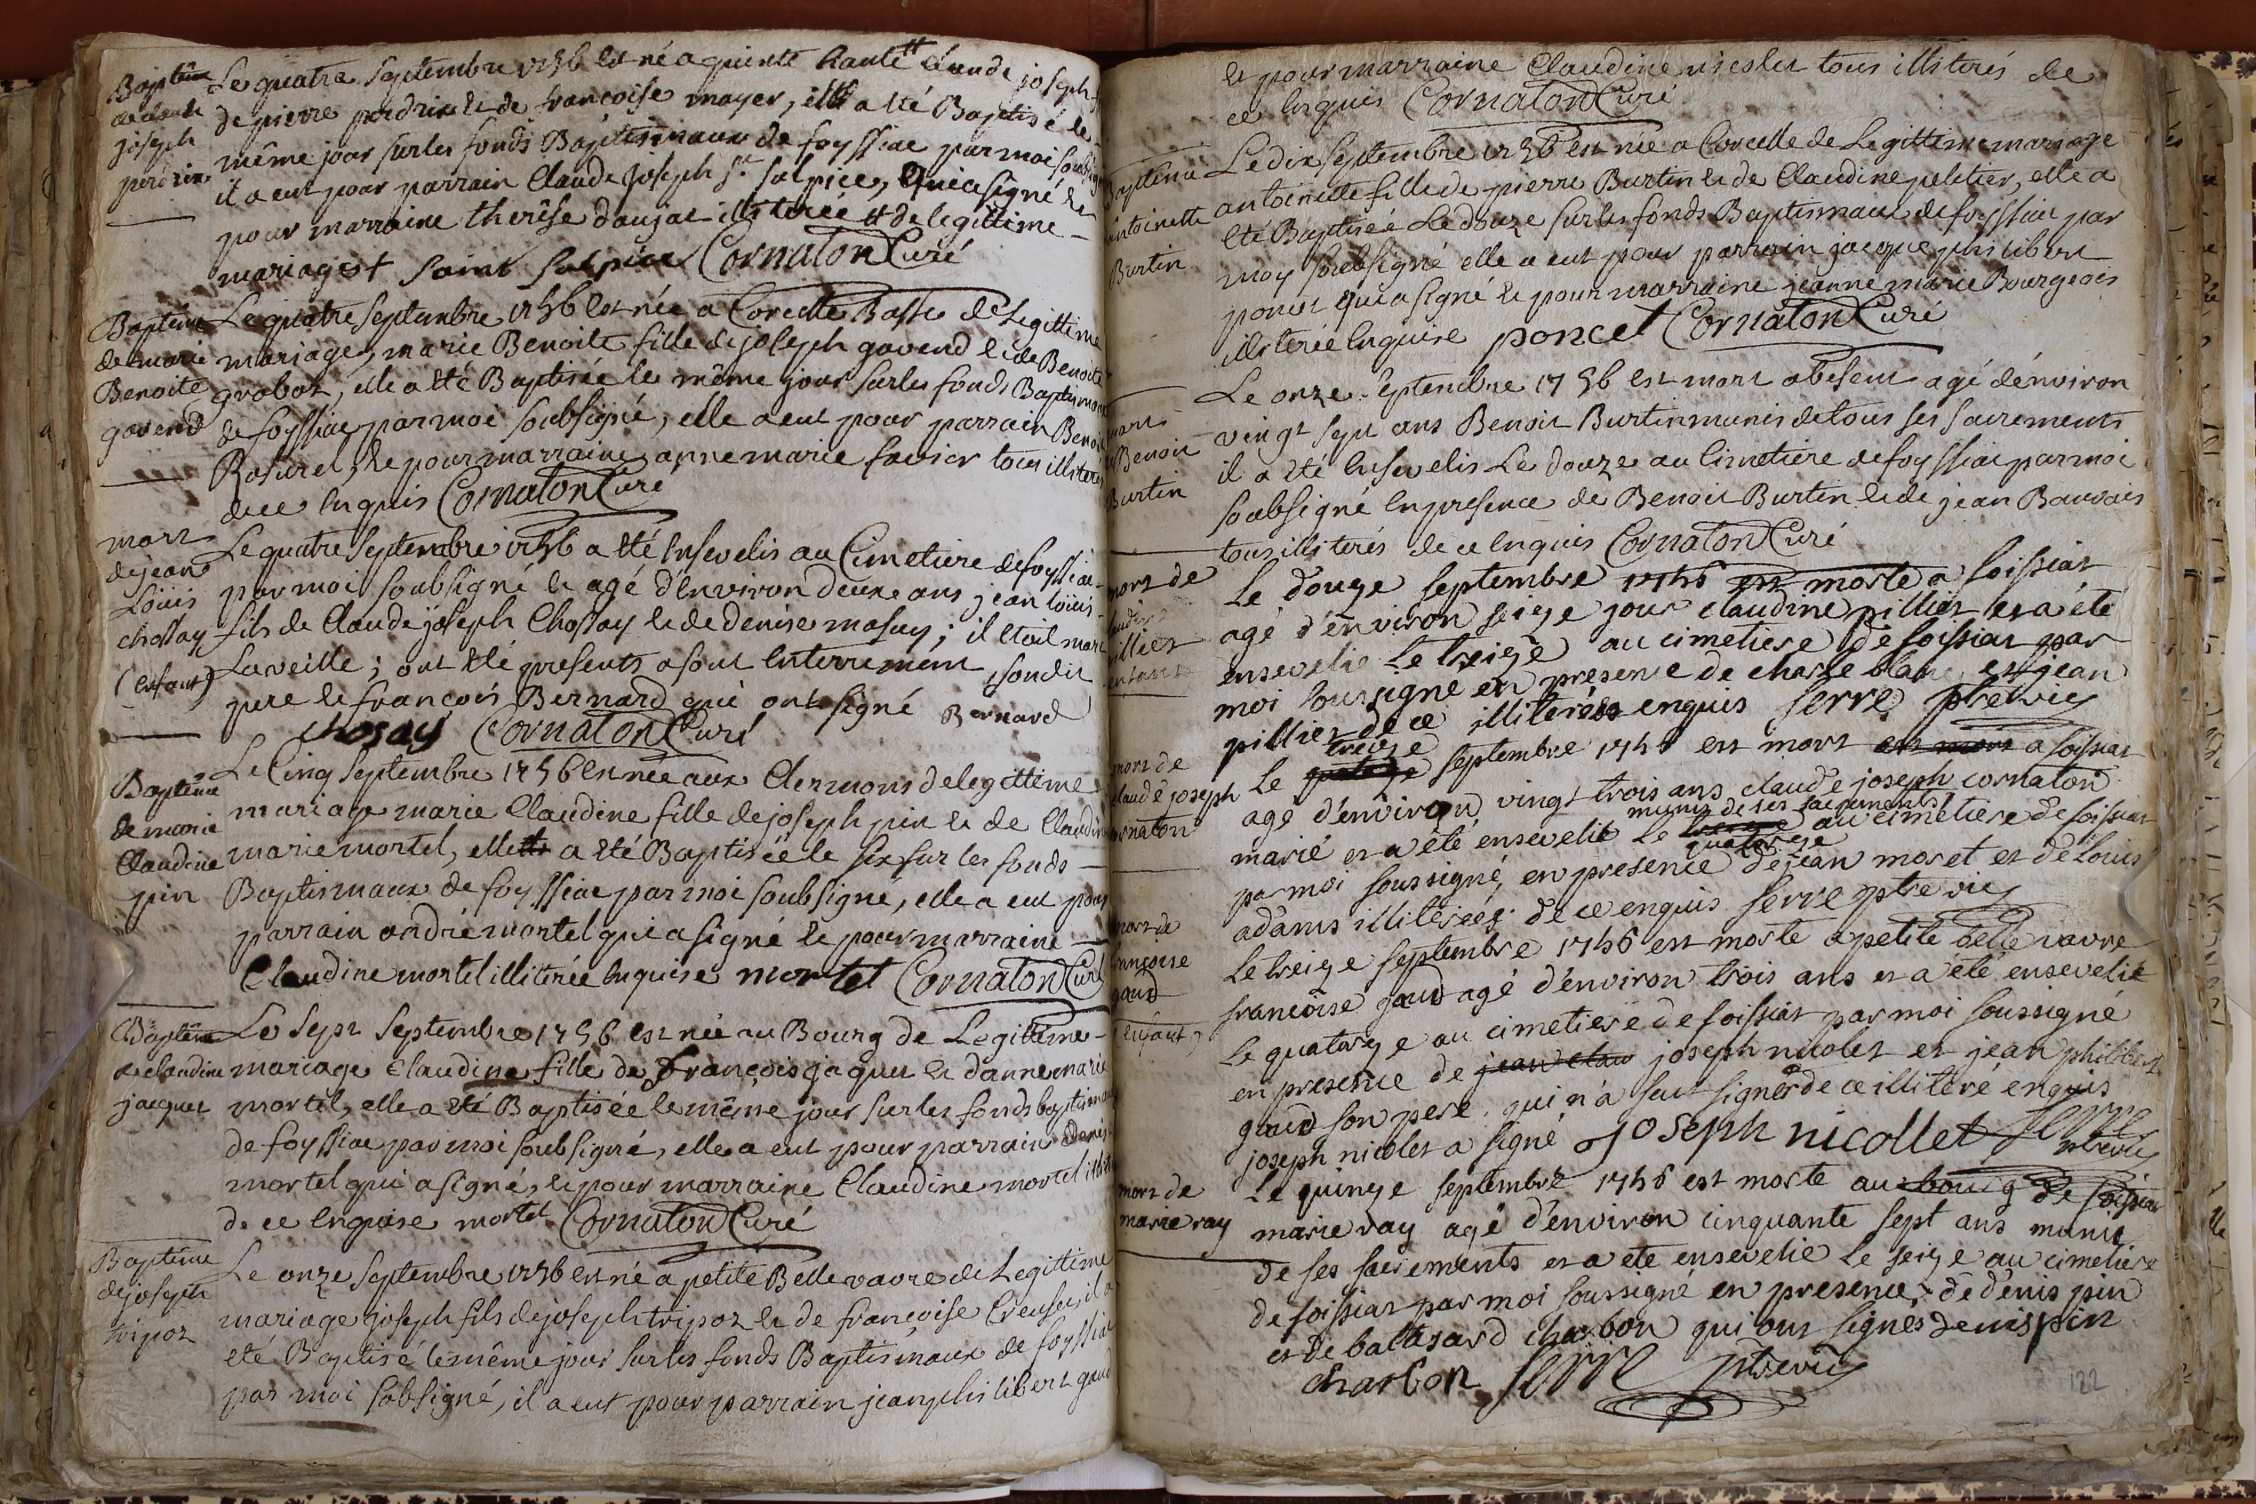 Baptême
de claude
joseph
perdrix
Le quatre septembre 1756 est né a quinte haute claude joseph fils
de pierre perdrix et de francoise mayer, il a été Baptisé le
même jour sur les fonds Baptismaux de foyssiac par moi soubsigné
il a eut pour parrain Claude joseph st sulpice, qui a signé et
pour marraine therése daujat illiterée # de legittime
mariage + saint sulpice Cornaton Curé
Baptême
de marie
Benoite
gavend
Le quatre septembre 1756 est née a Corcelle Basse de Legittime
mariage, marie Benoite fille de joseph gavend et de Benoite
grobot, elle a été Baptisée le même jour sur les fonds Baptismaux
de foyssiac par moi soubsigné, elle a eut pour parrain Benoit
Rosuret, et pour marraine anne marie favier tous illiterés
de ce Enquis Cornaton Curé
mort
de jean
Loüis
chossay
(enfant)
Le quatre septembre 1756 a été Ensevelis au Cimetiere de foyssiac
par moi soubsigné et agé d'environ deux ans jean loüis
fils de Claude joseph Chossay et de denise masuy; il etoit mort
La veille; ont été presents a sont Enterrement, sondit
pere et francois Bernard qui ont signé Bernard
chosay Cornaton Curé
Baptême
de marie
Claudine
pin
Le Cinq septembre 1756 est née aux Clermons de legittime
mariage marie Claudine fille de joseph pin et de Claudine
marie mortel, elle a été Baptisée le six sur les fonds
Baptismaux de foyssiac par moi soubsigné, elle a eut pour
parrain andré mortel qui a signé et pour marraine
Claudine mortel illiterée Enquise mortel Cornaton Curé
Baptême
de claudine
jacquet
Le sept septembre 1756 est née au Bourg de Legittime
mariage Claudine fille de françois jaquet et d'anne marie
mortel, elle a été Baptisée le même jour sur les fonds baptismaux
de foyssiac par moi soubsigné, elle a eut pour parrain denis
mortel qui a signé, et pour marraine Claudine mortel illit
de ce Enquise mortel Cornaton Curé
Baptême
de joseph
tripoz
Le onze septembre 1756 est né a petite Bellevavre de Legittime
mariage joseph fils de joseph tripoz et de françoise Creuset, il a
été Baptisé le même jour sur les fonds Baptismaux de foyssiac
par moi sobsigné, il a eut pour parrain jean philibert gaud
et pour marraine Claudine tous illiterés de
ce Enquis Cornaton Curé
Baptême
antoinette
Burtin
Le dix septembre 1756 est née a Corcelle de Legittime mariage
antoinette fille de pierre Burtin et de Claudine peletier, elle a
été Baptisée Le douze sur les fonds Baptismaux de foyssiac par
moy soubsigné elle a eut pour parrain jacque philibert
poncet qui a signé et pour marraine jeanne marie Bourgeois
illiterée Enquise poncet Cornaton Curé
mort
de Benoit
Burtin
Le onze septembre 1756 est mort agé d'environ
vingt sept ans Benoit Burtin munis de tous ses sacrements
il a été Ensevelis Le douze au Cimetiere de foyssiac par moi
soubsigné En presence de Benoit Burtin et de jean Bauvais
tous illiterés de ce Enquis Cornaton Curé
mort de
claudine
pillier
enfant
Le douze septembre 1756 est morte a foissiat
agé d'environ seize jour claudine pillier et a été
ensevelie Le treize au cimetiere de foissiat par
moi soussigné en presence de charle blanc et jean
pillier de ce illiterés enquis serre ptre vic
mort de
claude joseph
cornaton
Le quatorze treize septembre 1756 est mort est mort a foissiat
agé d'environ vingt trois ans claude joseph cornaton
munis de ses sacrements
marié et a été ensevelit Le treize quatorze au cimetiere de foissiat
par moi soussigné, en presence de jean moret et de Louis
adams illiterées de ce enquis serre ptre vic
mort de
françoise
gaud
enfant
Le treize septembre 1756 est morte a petite belle vavre
francoise gaud agé d'environ trois ans et a été ensevelié
Le quatorze au cimetiere de foissiat par moi soussigné
en presence de jean claude joseph nicolet et jean philibert
gaud son pere qui n'a scut signer de ce illiteré enquis
joseph nicolet a signé joseph nicollet serre
ptre vic
mort de
marie ray
Le quinze septembre 1756 est morte au bourg de foissiat
marie ray agé d'environ cinquante sept ans munie
de ses sacrements et a eté ensevelie Le seize au cimetiere
de foissiat par moi soussigné en presence de denis pin
et de baltasard charbon qui ont signés denis pin
charbon serre ptre vic
122